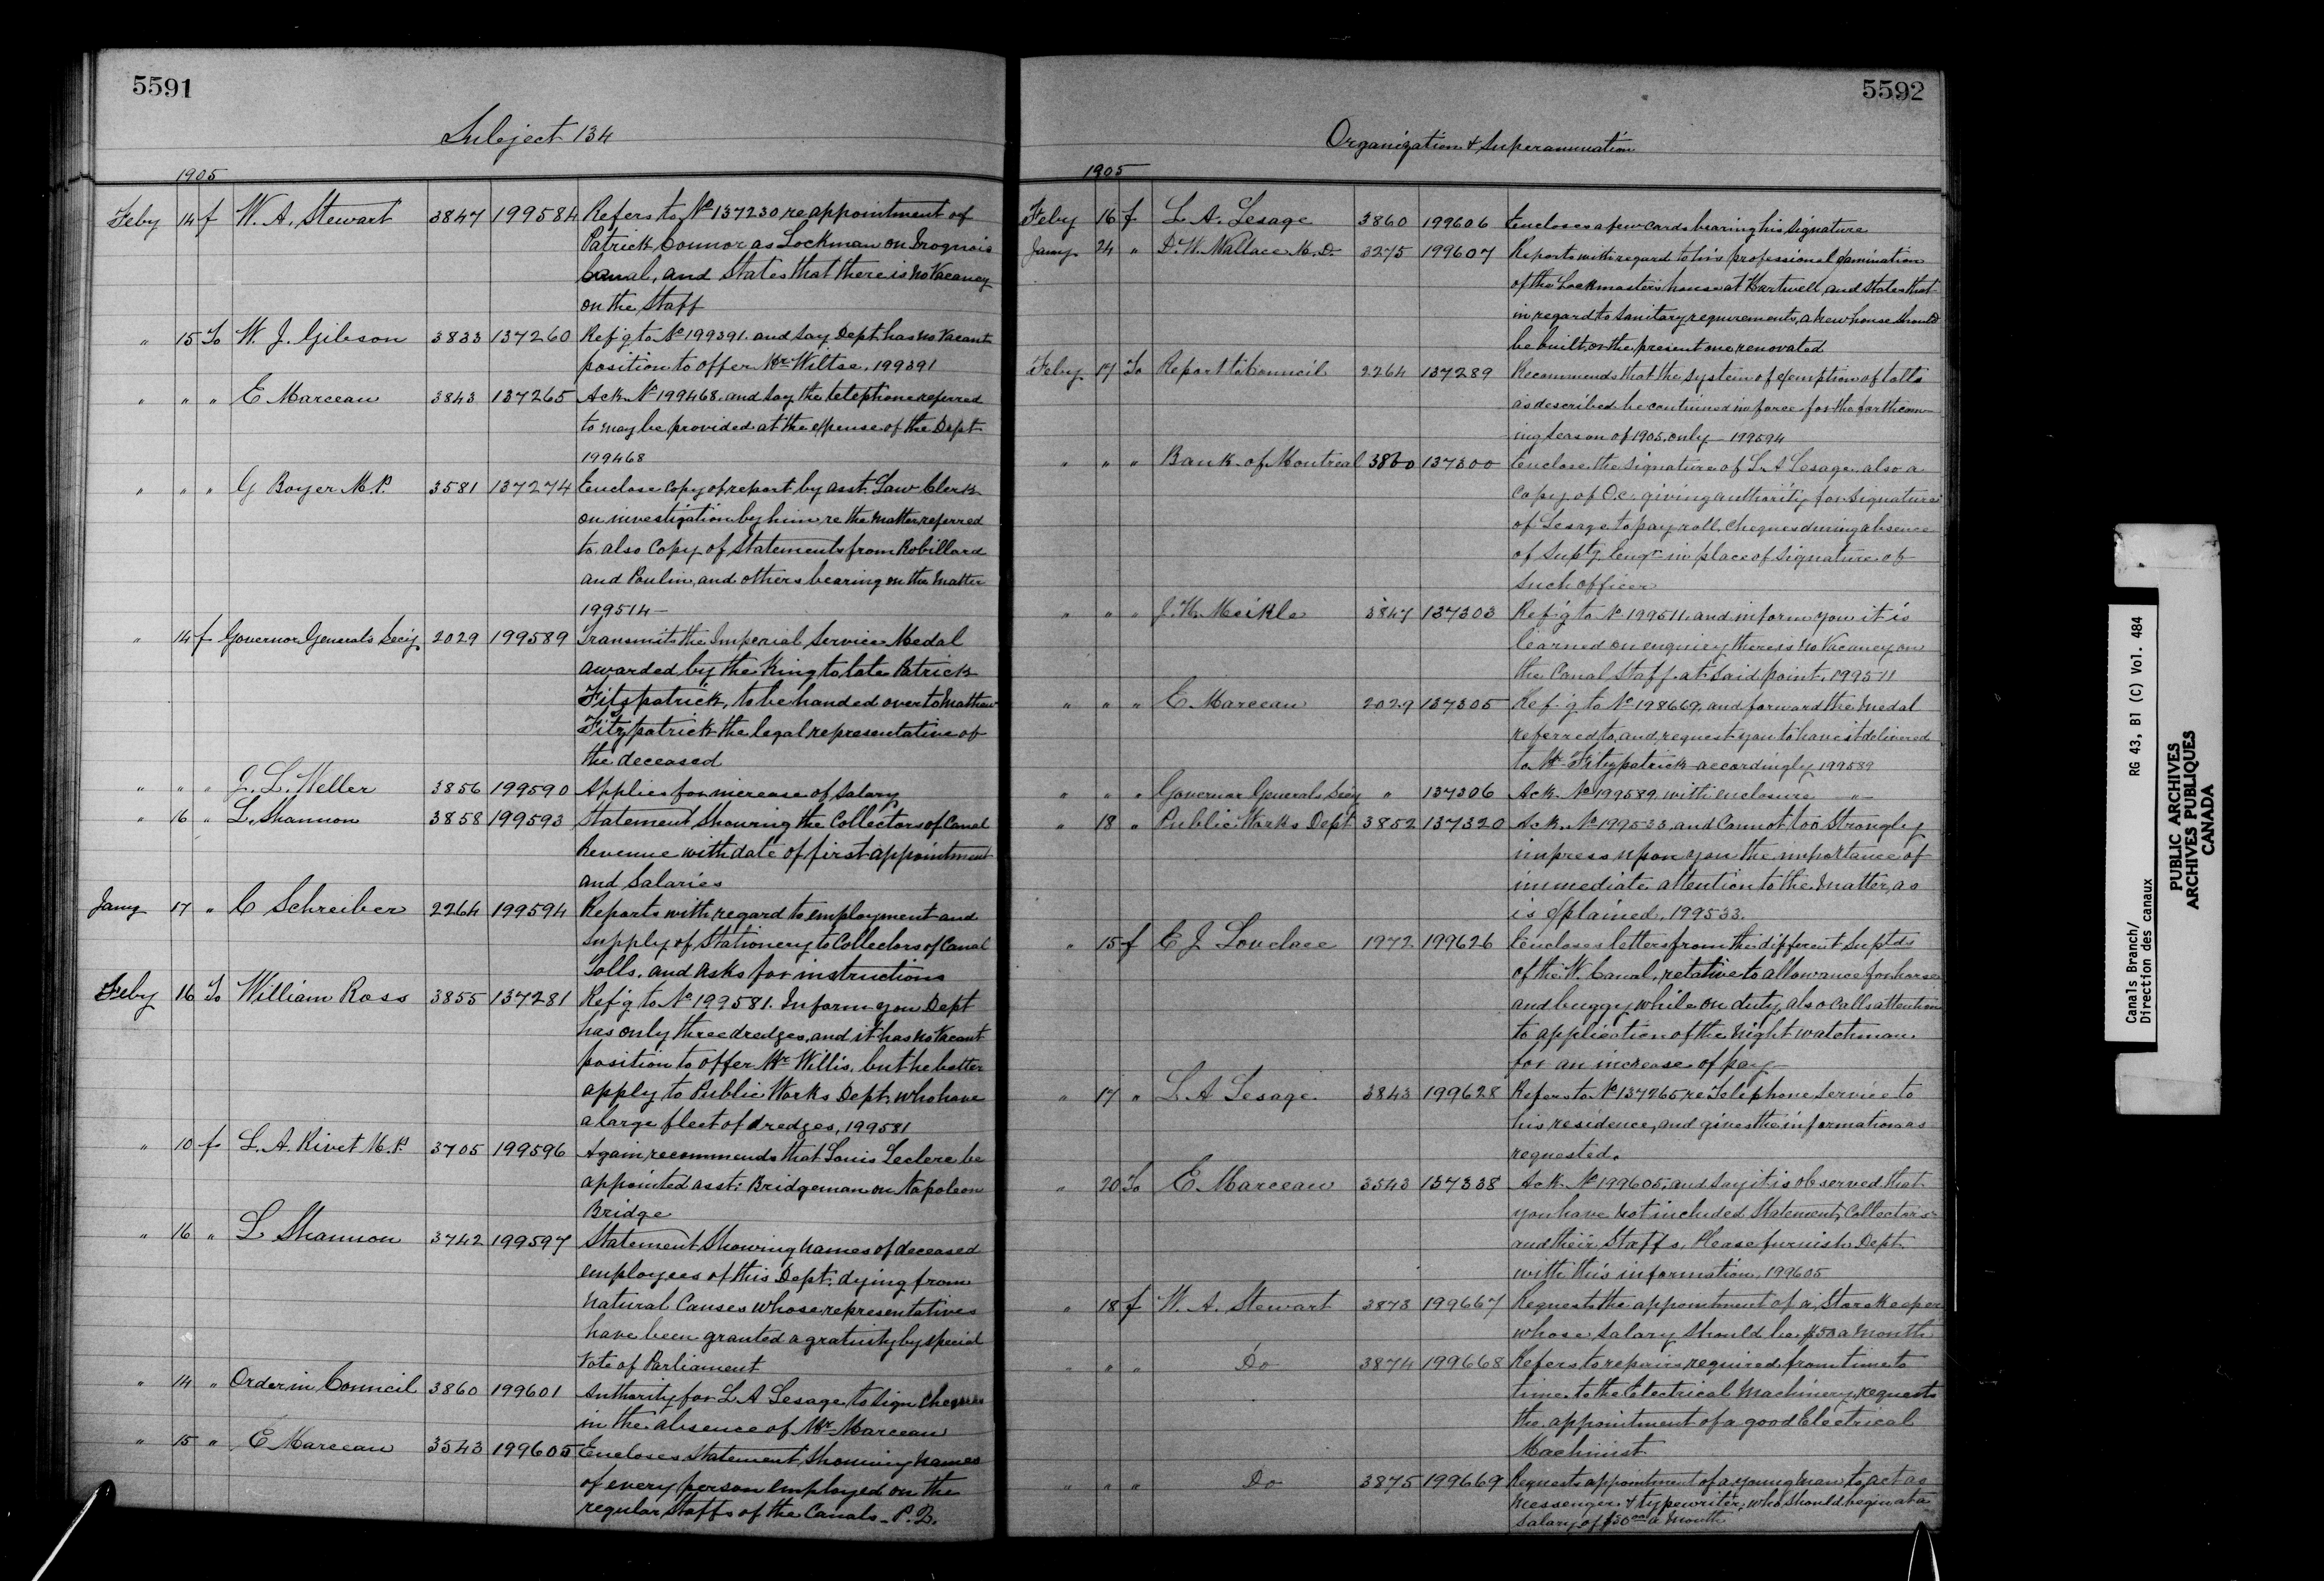 5591
Subject 134
1905
Feby 14 f W. A. Stewart 3847 199584 Refers to No 137230 re appointment of
Patrick Connor as Lockman on Iroquois
Canal, and States that there is no Vacancy
on the Staff
" 15 To W. J. Gibson 3833 137260 Ref'g to No 199391. and say Dept. has no Vacant
position to offer Mr Wiltse. 199391
" " " E Marceau 3843 137265 Ack No 199468. and say the telephone referred
to may be provided at the expense of the Dept
199468
" " " G Boyer M.P. 3581 137274 Enclose copy of report by asst. Law Clerk
on investigation by him re the matter referred
to. also Copy of Statements from Robillard
and Poulin, and others bearing on the matter
199514 —
" 14 f Governor Generals Secy 2029 199589 Transmits the Imperial Service Medal
awarded by the King to late Patrick
Fitzpatrick, to be handed over to Mathew
Fitzpatrick the legal representative of
the deceased
" " " J. L. Weller 3856 199590 Applies for increase of Salary
" 16 " L. Shannon 3858 199593 Statement Showing the Collectors of Canal
Revenue with date of first appointment
and Salaries
Jany 17 " C Schreiber 2264 199594 Reports with regard to employment and
supply of Stationery to Collectors of Canal
Tolls. and asks for instructions
Feby 16 To William Ross 3855 137281 Ref'g to No 199581. Inform you Dept
has only three dredges, and it has no Vacant
position to offer Mr Willis. but he better
apply to Public Works Dept. who have
a large fleet of dredges, 199581
" 10 f L. A. Rivet M.P. 3705 199596 Again recommends that Louis Leclerc be
appointed asst: Bridgeman on Napoleon
Bridge
" 16 " L Shannon 3742 199597 Statement Showing names of deceased
employees of this Dept. dying from
Natural Causes whose representatives
have been granted a gratuity by special
Vote of Parliament
" 14 " Order in Council 3860 199601 Authority for L A Lesage to sign cheques
in the absence of Mr Marceau
" 15 " E Marceau 3543 199605 Encloses Statement, Showing names
of every person employed on the
regular Staffs of the Canals - P. Q.
5592
Organization & Superannuation
1905
Feby 16 f L. A. Lesage 3860 199606 Encloses a few cards bearing his Signature
Jany 24 " D. W. Wallace M.D. 3275 199607 Reports with regard to his professional examination
of the Lockmasters house at Hartwell, and States that
in regard to sanitary requirements, a new house should
be built, or the present one renovated
Feby 17 To Report to Council 2264 137289 Recommends that the System of exemption of tolls
as described be continued in force for the forthcom-
ing Season of 1905, only — 199594
" " " Bank of Montreal 3860 137300 Enclose the Signature of L. A Lesage. also a
Copy of O.C. giving authority for Signature
of Lesage to pay roll. cheques during absence
of Suptg. Engr. in place of Signature of
such officer
" " " J. H. Meikle 3847 137303 Ref'g to No 199511. and inform you it is
learned on enquiry there is no Vacancy on
the Canal Staff at said point. 199511
" " " E Marceau 2029 137305 Ref'g to No 198669, and forward the Medal
referred to, and request you to have it delivered
to Mr Fitzpatrick accordingly 199589
" " " Governor Generals Secy " 137306 Ack. No 199589. with enclosure — " —
" 18 " Public Works Dept 3852 137320 Ack. No 199533, and Cannot too Strongly
impress upon you the importance of
immediate attention to the matter, as
is explained. 199533.
" 15 f E J Lovelace 1972 199626 Encloses letters from the different Suptds
of the W. Canal, relative to allowance for horse
and buggy while on duty, also calls attention
to application of the Night watchman.
for an increase of pay
" 17 " L A Lesage 3843 199628 Refers to No 137265 re Telephone Service to
his residence, and gives the information as
requested.
" 20 To E Marceau 3543 137338 Ack. No 199605, and say it is observed that
you have not included Statement, Collectors
and their Staffs. Please furnish Dept.
with this information. 199605
" 18 f W. A. Stewart 3873 199667 Requests the appointment of a Storekeeper
whose Salary should be $50 a month
" " " Do 3874 199668 Refers to repairs required from time to
time. to the Electrical Machinery, requests
the appointment of a good Electrical
Machinist
" " " Do 3875 199669 Requests appointment of a young man, to act as
Messenger & typewriter, who should begin at a
Salary of $30 00 a month
Canals Branch/ RG 43, B1 (C) Vol. 484
Direction des canaux
PUBLIC ARCHIVES
ARCHIVES PUBLIQUES
CANADA